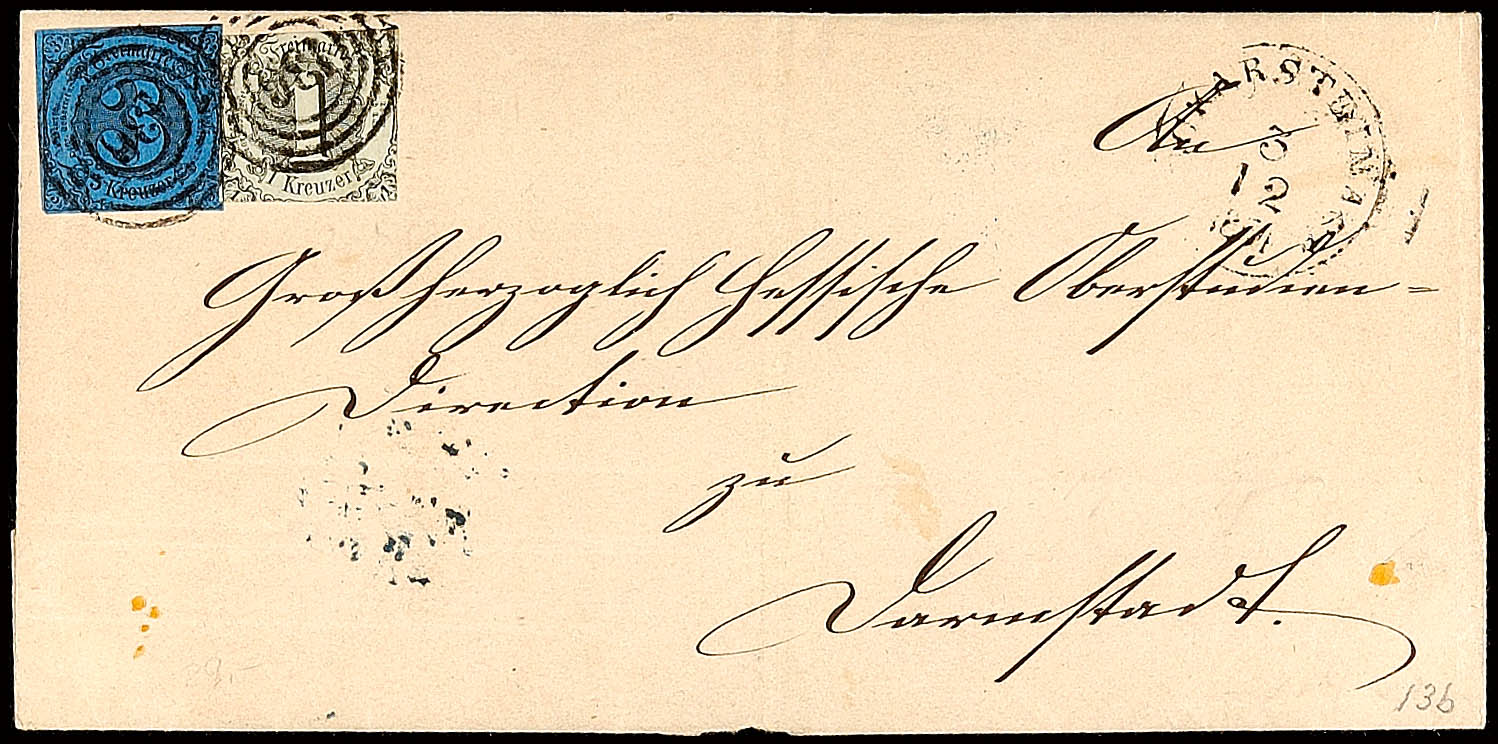 Freimarke
3
3 Kreuzer
Freimarke
1
1 Kreuzer
An
3
12
Großherzoglich Hessische Oberstudien=
Direction
zu
Darmstadt.
13b